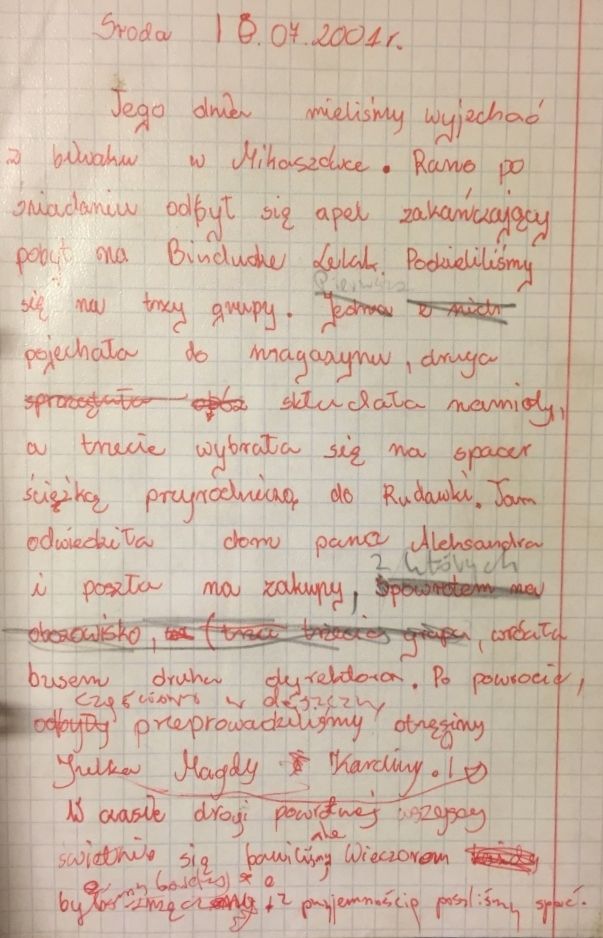 Środa 18.07.2001r.
Tego dnia mieliśmy wyjechać
z biwaku w Mikaszówce. Rano po
śniadaniu odbył się apel zakańczający
pobyt na Binduche Lelak. Podzieliliśmy
Pierwsza
się na trzy grupy. Jedna z nich
pojechała do magazynu, druga
sprzątała obóz składała namioty,
a trzecie wybrała się na spacer
ścieżką przyrodniczą do Rudawki. Tam
odwiedziła dom pana Aleksandra
z których
i poszła na zakupy, spowrotem na
obozowisko, trzecia grupa, wróciła
busem druha dyrektora. Po powrocie,
częściowo w deszczu,
odbyły przeprowadziliśmy otrzęsiny
Julka Magdy i Karoliny.
W czasie drogi powrotnej wszyscy
ale
świetnie się bawiliśmy Wieczorem
bardzo
i z przyjemnością poszliśmy spać.